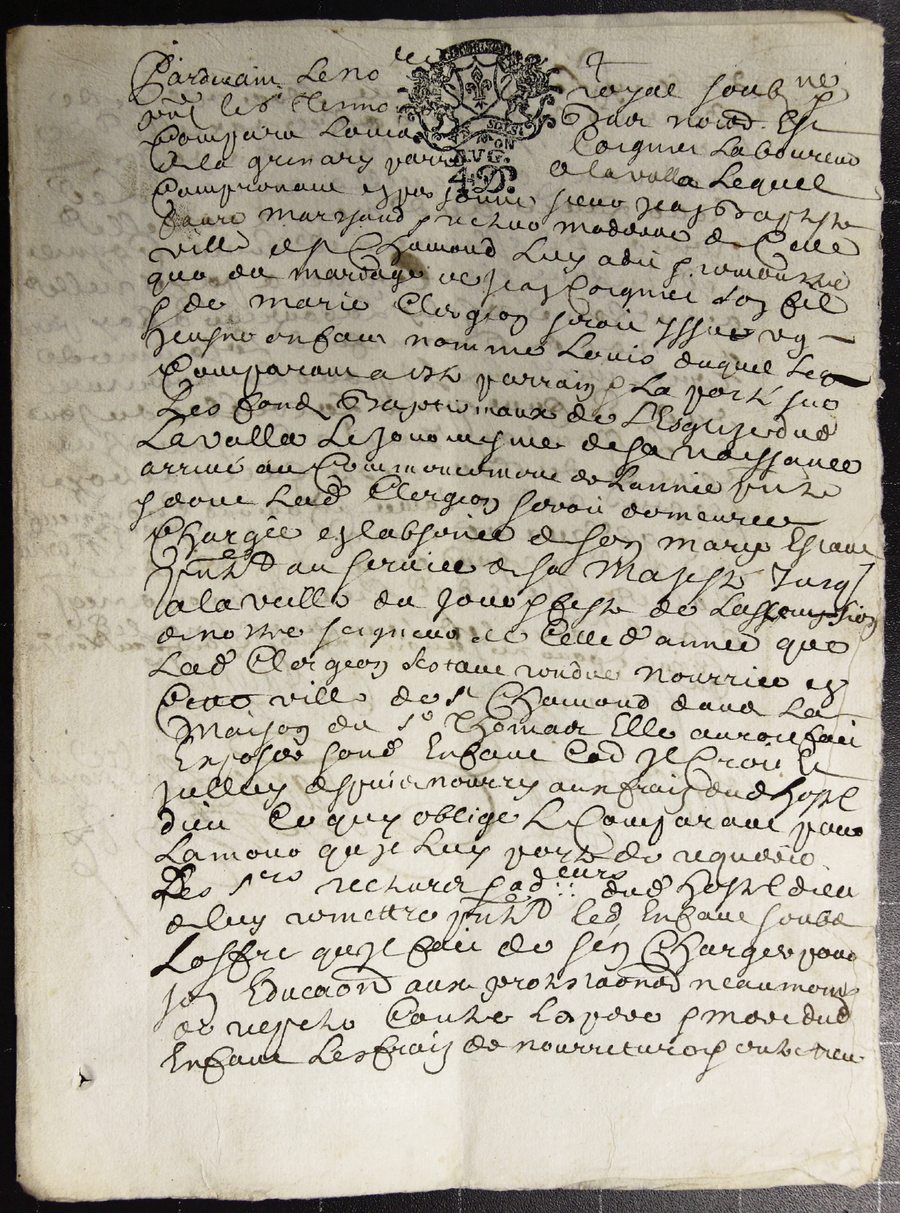 Pardevant Le no re royal soub.ne
pnt les tesmo bas nomd. Est
Comparu Louis Coignet Laboureur
de la grinary parr de lavalla Lequel
Comparant en personne sieur jean Baptiste
marchand recteur moderne de Celle
ville de st Chamond Luy a dit & remonstré
que du mariage de jean Coignet son fils
& de marie Clergeon seroit yssu un
enfant nommé Louis duquel led
Comparant a esté parrain & La porté sur
Les fonds Baptismaux de L'Esglize dud
Lavalla Le jour mesme de sa naissance
arrivé au Commencement de Lannée
& dont Lad Clergeon seroit demeurée
Chargée en labsence de son mary Estant
au service de sa Majesté jusq
a la veille du jour & feste de Lassention
de nostre seigneur de Celle d année que
Lad Clergeon s'estant rendue nourrice en
Cette ville de st Chamond dans La
Maison du sr Thomas Elle auroit fait
Exposer sond Enfant
despuis nourry aux frais dud hostel
dieu Ce quy oblige Le Comparant pour
Lamour qu'il Luy porte de requerir
Les srs recteurs & ad eurs dud hostel dieu
de luy remettre led Enfant soubs
Loffre qu'il fait de sen Charger pour
son Educaon aux protestaons neaumoins
de repeter Contre Le pere & mere dud
Enfant Les frais de nourriture & entretien
AVG.
4D.